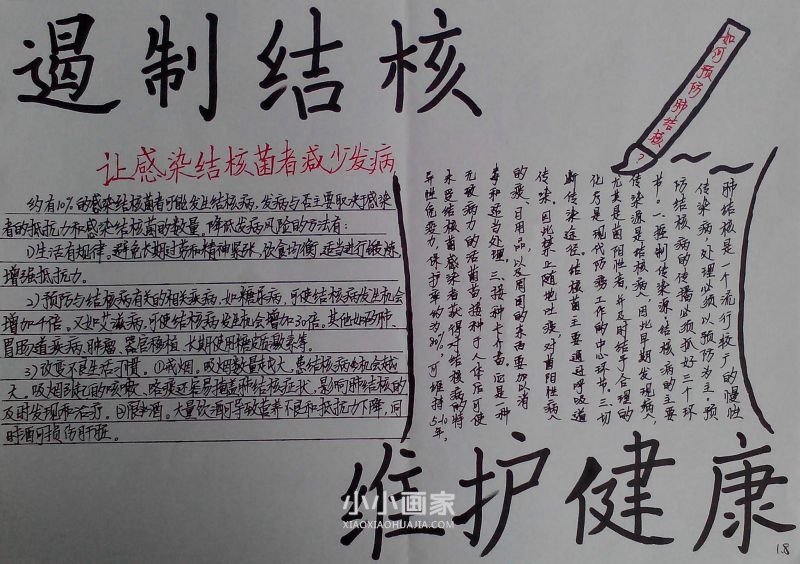 遏制结核
让感染结核菌者减少发病
约有10%的感染结核菌者可能发生结核病,发病与否主要取决于感染
者的抵抗力和感染结核菌的数量,降低发病风险的方法有:
1)生活有规律。避免长期过劳和精神紧张,饮食均衡,适当进行锻炼,
增强抵抗力。
2)预防与结核病有关的相关疾病,如糖尿病,可使结核病发生机会
增加4倍。又如艾滋病,可使结核病发生机会增加30倍。其他如矽肺、
胃肠道疾病、肿瘤、器官移植、长期使用糖皮质激素等。
3)改变不良生活习惯。①戒烟。吸烟数量越大,患结核病的机会越
大。吸烟引起的咳嗽、咳痰还容易掩盖肺结核症状,影响肺结核的
及时发现和治疗。②限制酒。大量饮酒可导致营养不良和抵抗力下降,同
时酒可损伤肝脏。
如何预防肺结核?
肺结核是一个流行较广的慢性
传染病,处理必须以预防为主,预
防结核病的传播必须抓好三个环
节。一、控制传染源,结核病的主要
传染源是结核病人,因此早期发现病人,
尤其是菌阳性者,并及时给予合理的
化疗是现代防痨工作的中心环节。二、切
断传染途径。结核菌主要通过呼吸道
传染,因此禁止随地吐痰,对菌阳性病人
的痰、日用品,以及周围的东西要加以消
毒和适当处理。三、接种卡介苗。它是一种
无致病力的活菌苗,接种于人体后可使
未受结核菌感染者获得对结核病的特
异性免疫力,保护率约为80%,可维持5-10年,
维护健康
小小画家
XIAOXIAOHUAJIA.COM
1.8